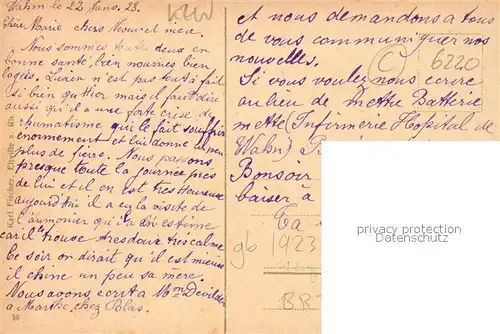 Wahn le 22 Jans. 23.
Chère Marie chers Neveu et niece.
Nous sommes toutes deux en
bonne santé, bien nourries bien
logés. Lucien n'est pas tout à fait
si bien quttier mais il faut dire
aussi qu'il a une forte crise de
rhumatisme qui le fait souffrir
enormement et lui donne un peu
plus de fievre. Nous passons
presque toute la journée près
de lui et il en est tres heureuse
aujourd'hui il a eu la visite de
l'aumonier qui l'a
car il le trouve tres doux tres calme
Ce soir on dirait qu'il est mieux
il chine un peu sa mère.
Nous avons écrit a Mme Devilder
a Marthe, chez Blas.
38
Karl Fischer, Eltville a. Rh.
et nous demandons a tous
de vous communiquer nos
nouvelles.
Si vous voulez nous ecrire
au lieu de mettre Batterie
mette (Infirmerie Hoopital de
Wahn)
Bonsoir
baiser à
ta
C
6220
gb 1923
privacy protection
Datenschutz